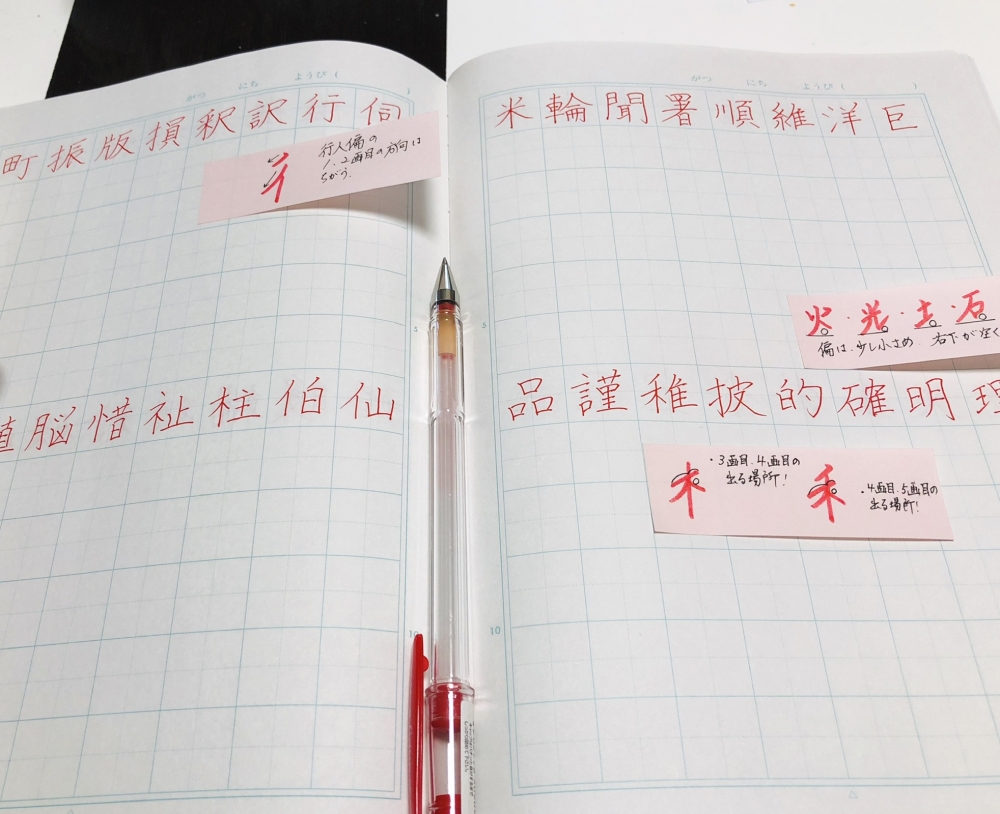 がつ にち ようび（ ）
町振版損釈訳行伺
彳
行人偏の
1、2画目の方向は
ちがう。
5
脳惜祉柱伯仙
10
がつ にち ようび（ ）
米輪聞署順維洋巨
火・光・土・石
偏は、少し小さめ 右下が空く
5
品謹稚披的確明理
木
・3画目、4画目の
出る場所！
禾
・4画目、5画目の
出る場所！
10